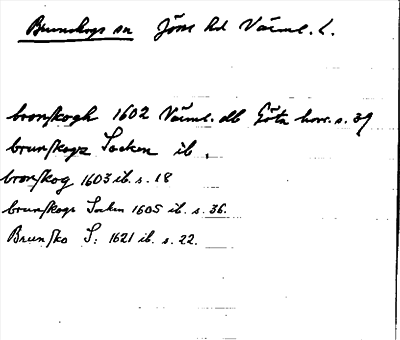 Brunskogs sn Jösse hd Värml. l.
bronskogh 1602 Värml. db Göta hovr. s. 39
brunskogz Socken ib.
bronskog 1603 ib. s. 18
brunskogs Socken 1605 ib. s. 36.
Brunsko S: 1621 ib. s. 22.